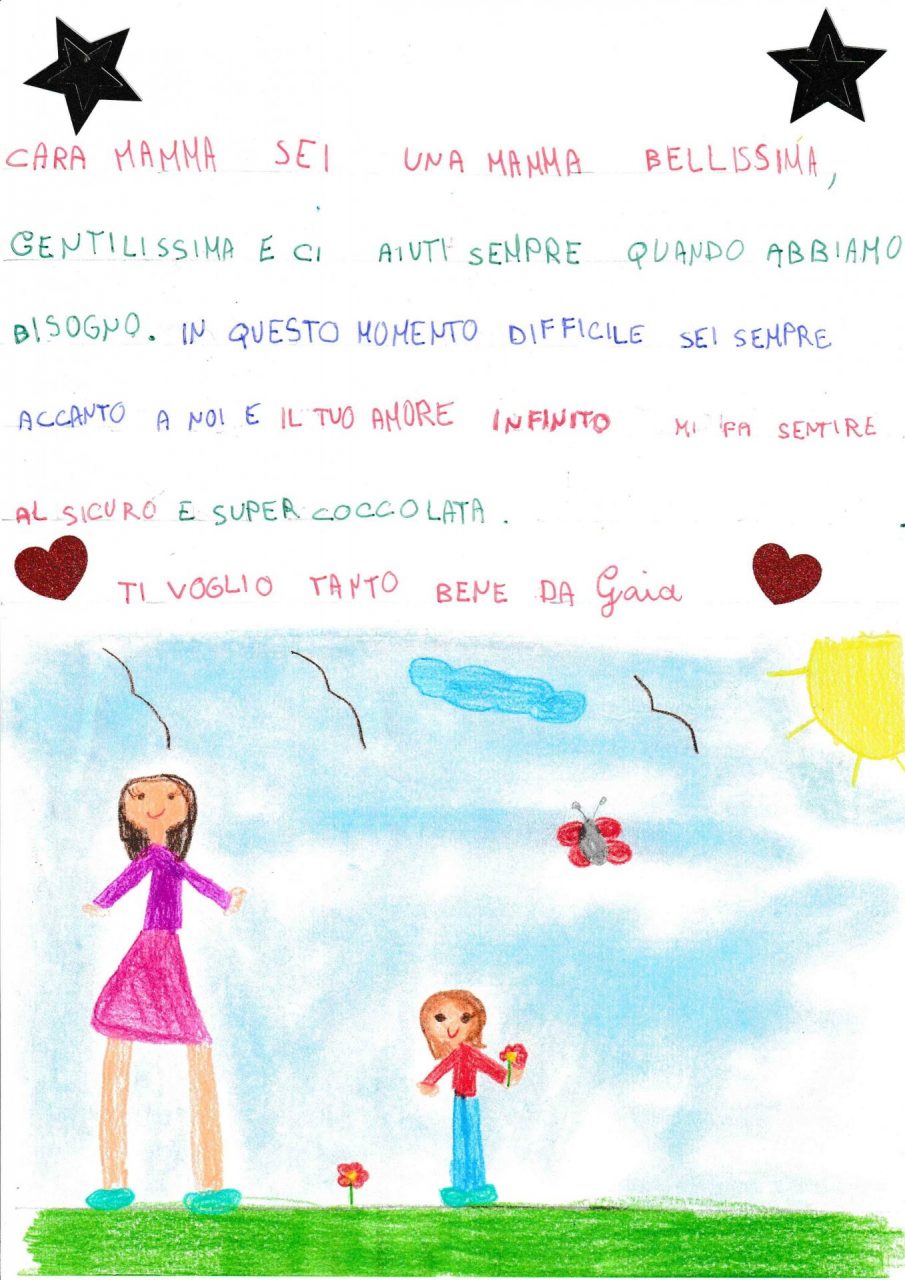 CARA MAMMA SEI UNA MAMMA BELLISSIMA,
GENTILISSIMA E CI AIUTI SEMPRE QUANDO ABBIAMO
BISOGNO. IN QUESTO MOMENTO DIFFICILE SEI SEMPRE
ACCANTO A NOI E IL TUO AMORE INFINITO MI FA SENTIRE
AL SICURO E SUPER COCCOLATA.
TI VOGLIO TANTO BENE DA Gaia